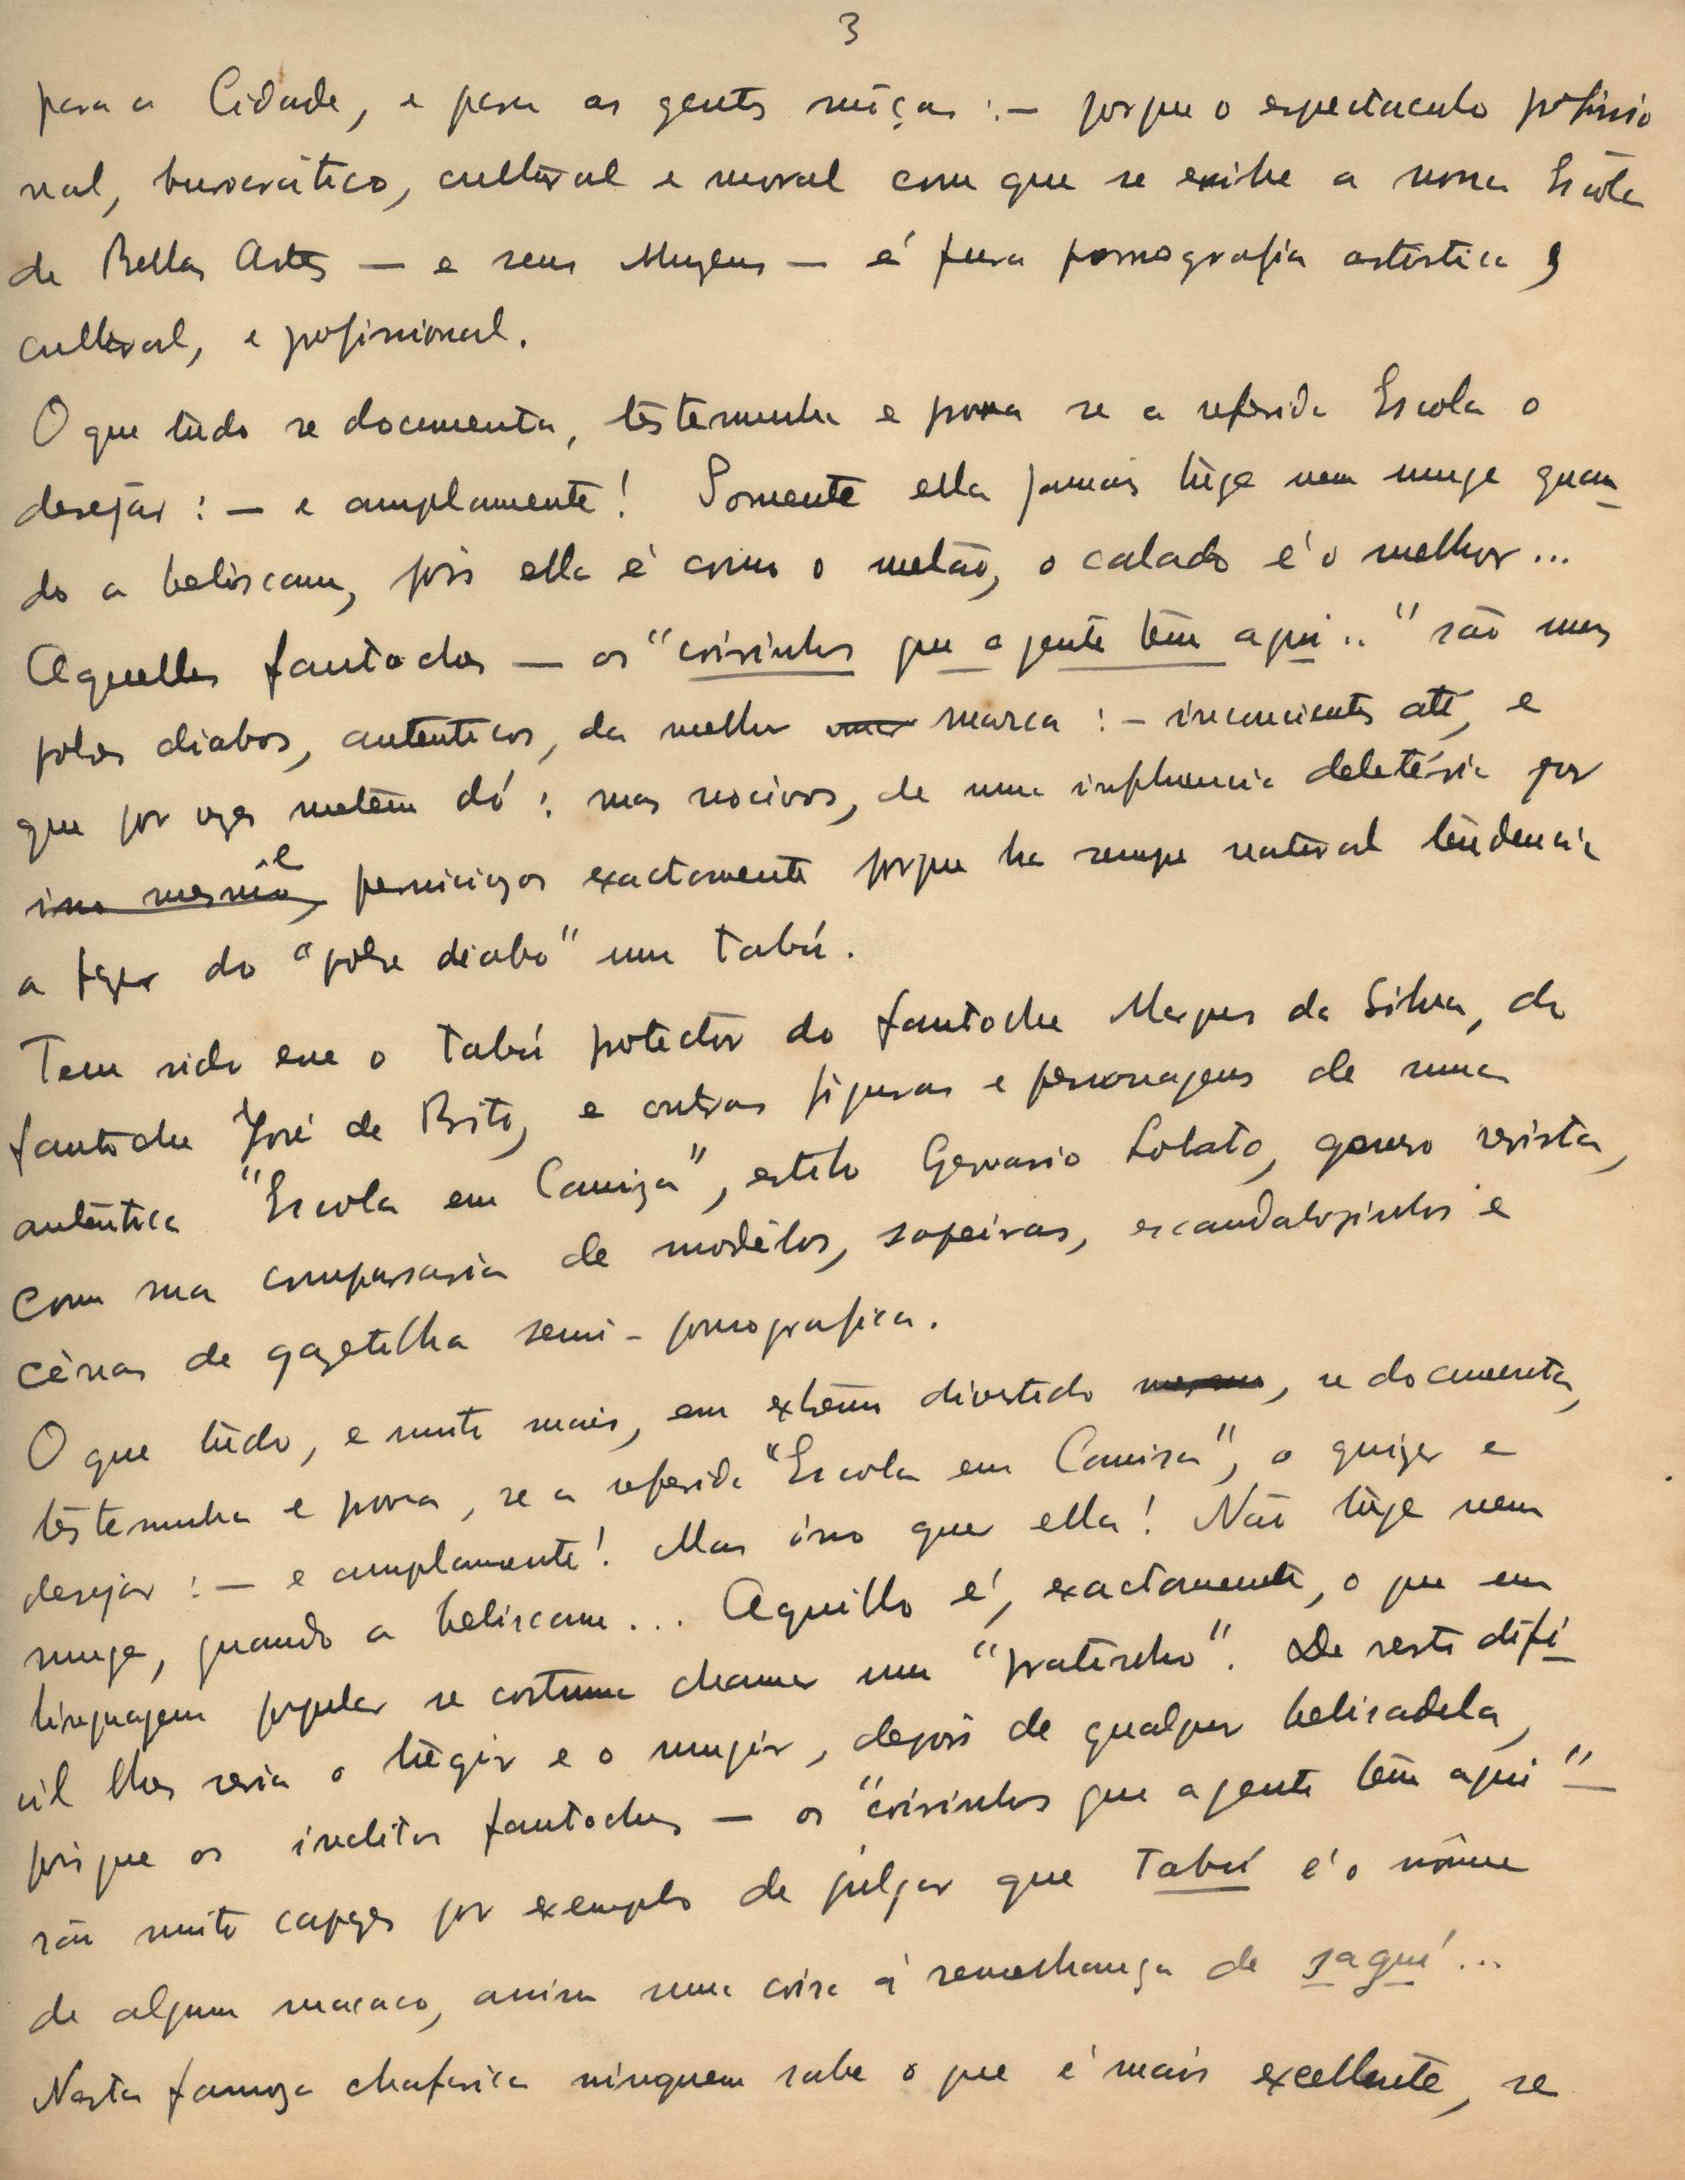 3
para a Cidade, e para as gentes móças :— porque o espectaculo profissio
nal, burocrático, cultural e moral com que se exibe a nossa Escóla
de Bellas Artes — e seus Muzeus — é pura pornografia artistica,
cultural, e profissional.
O que tudo se documenta, testemunha e prova se a referida Escola o
desejár : — e amplamente! Somente ella jamais tuge nem muge quan_
do a beliscam, pois ella é como o melão, o calado é o melhor...
Aquelles fantoches — os "coisinhos que a gente têm aqui.." são uns
pobres diabos, autenticos, da melhor marca : — inconcientes até, e
que por vezes metêm dó ; mas nocivos, de uma influencia deletéria por
isso mesmo, e perniciozos exactamente porque ha sempre natural tendencia
a fazer do "pobre diabo" um tabú.
Tem sido esse o tabú protector do fantoche Marques da Silva, do
fantoche José de Brito, e outras figuras e personagens de uma
autêntica "Escola em Camiza", estilo Gervasio Lobato, genero revista,
com sua comparsaria de modêlos, sopeiras, escandalozinhos e
cênas de gazetilha semi-pornografica.
O que tudo, e muito mais, em extremo divertido, se documenta,
testemunha e prova, se a referida "Escola em Camisa", o quizer e
desejar : — e amplamente! Mas isso quer ella! Não tuge nem
muge, quando a beliscam... Aquillo é, exactamente, o que em
linguagem popular se costuma chamar um "pratinho". De resto difi_
cil lhes seria o tugir e o mugir, depois de qualquer beliscadela,
pois que os inclitos fantoches — os "coisinhos que a gente têm aqui" —
são muito capazes por exemplo de julgar que Tabú é o nôme
de algum macaco, assim uma coisa á semelhança de sagui...
Nesta famoza chafarica ninguem sabe o que é mais excellente, se